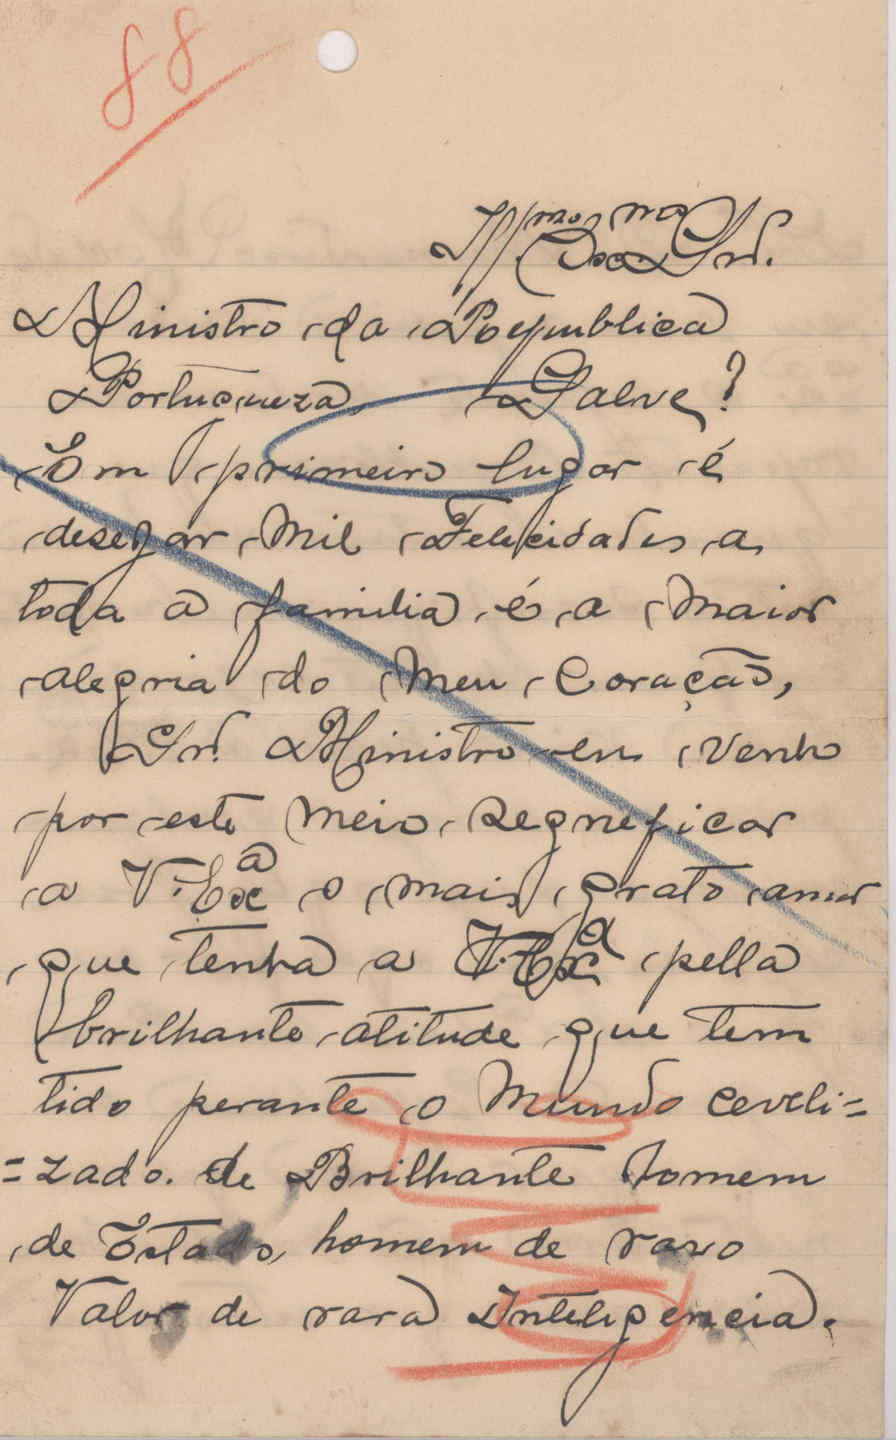 88
Illmo Exmo Snr.
Ministro da Republica
Portugueza Salve?
Em primeiro lugar é
desejar mil Felicidades a
toda a familia é a maior
alegria do meu Coração,
Snr. Ministro eu venho
por este meio segneficar
a V. Exa o mais grato amor
que tenha a V. Exa pella
brilhante atitude que tem
tido perante o Mundo ceveli=
=zado. de Brilhante homem
de Estado, homem de raro
Valor de rara Inteligencia.